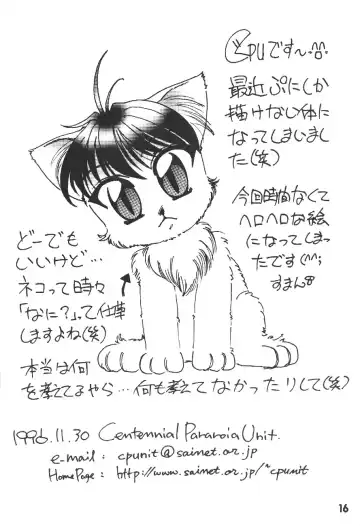 CPUです〜.^^.
最近ぷにしか
描けない体に
なってしまいまし
た(笑)
今回時間なくて
ヘロヘロな絵
になってしまっ
たです(^^;
すまん
どーでも
いいけど…
ネコって時々
「なに?」って仕草
しますよね(笑)
本当は何
を考えてるやら…何も考えてなかったりして(笑)
1996.11.30 Centennial Paranoia Unit.
e-mail : cpunit@sainet.or.jp
HomePage : http://www.sainet.or.jp/~cpunit
16